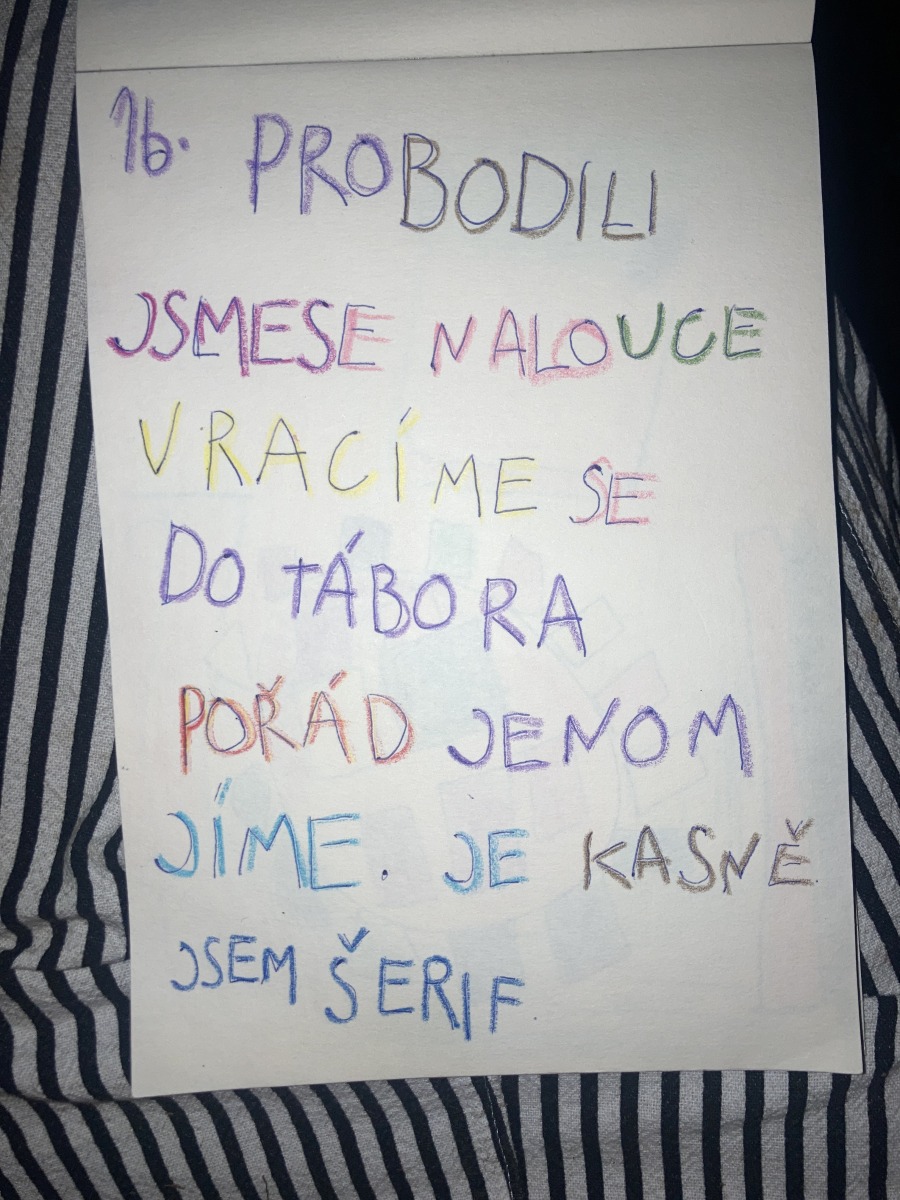 16. PROBODILI
JSMESE NALOUCE
VRACÍME SE
DO TÁBORA
POŘÁD JENOM
JÍME. JE KASNĚ
JSEM ŠERIF